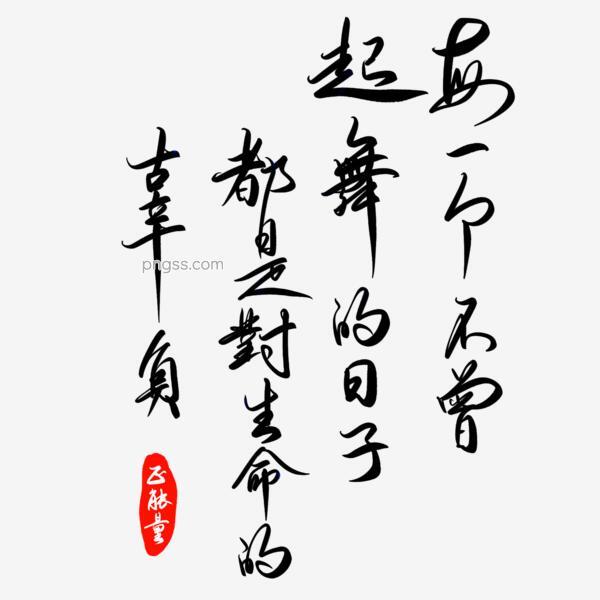 每一个不曾
起舞的日子
都是對生命的
辜負
正能量
pngss.com